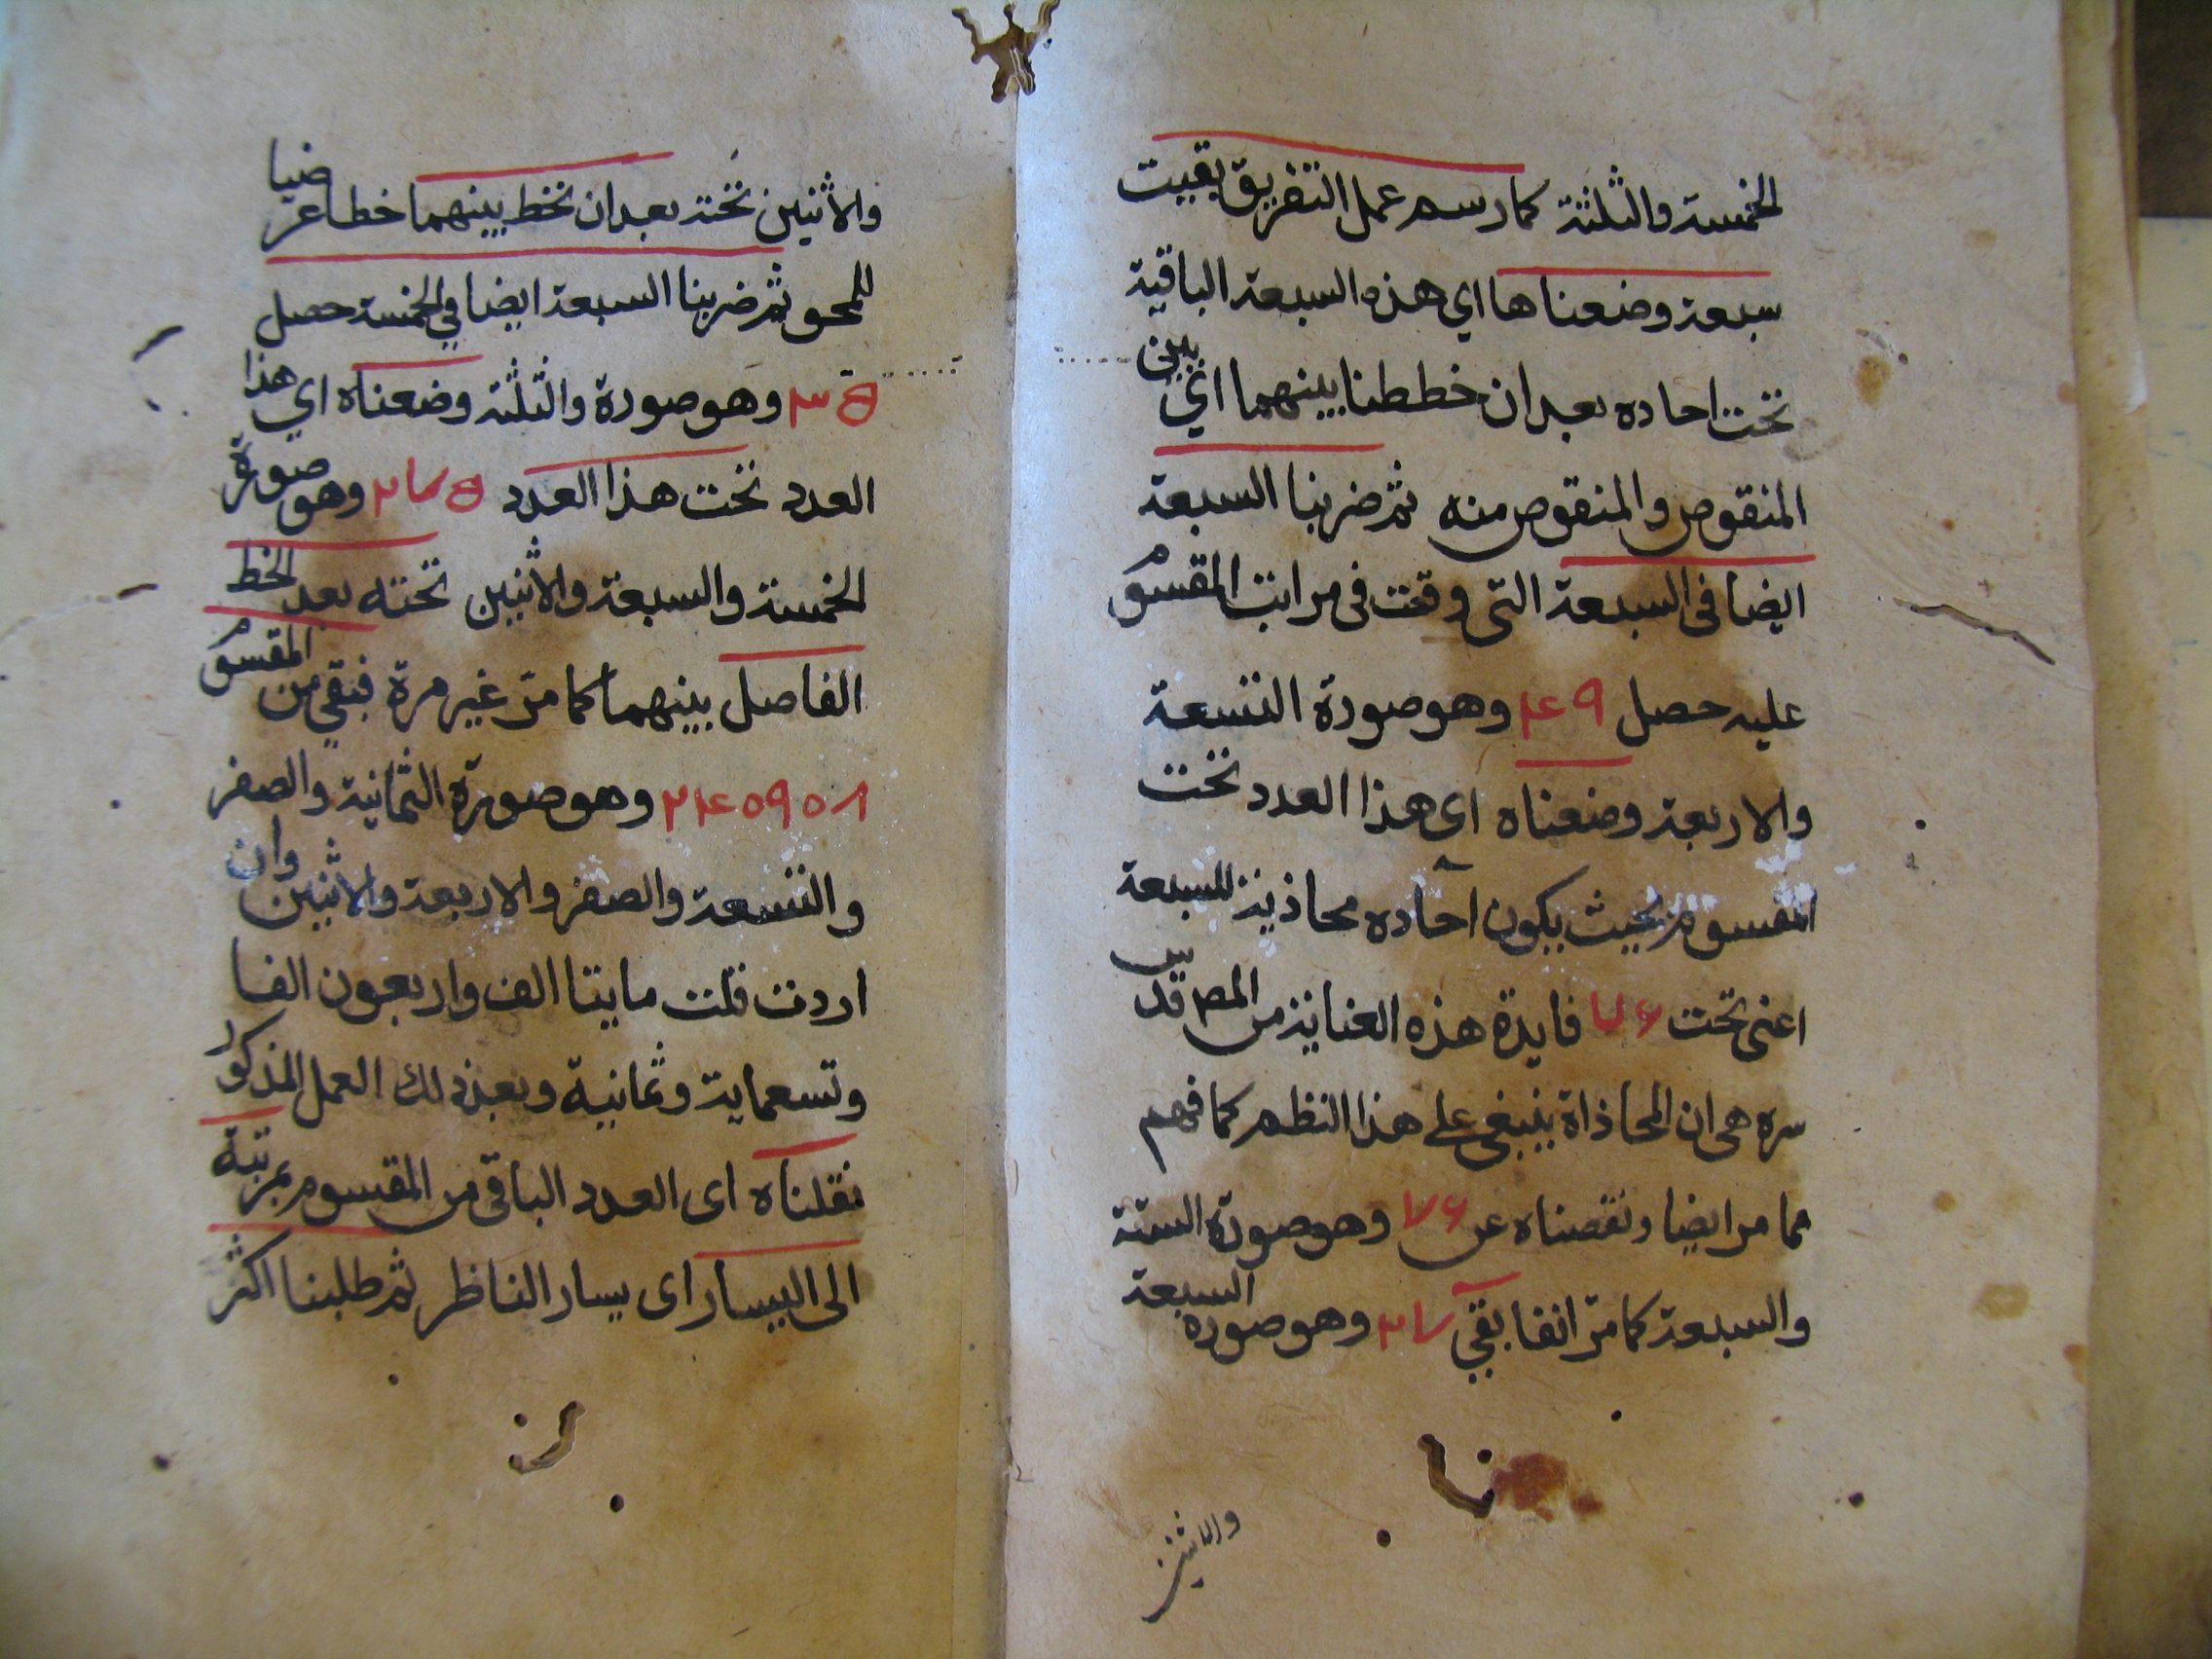 الخمسة والثلثة كما رسم عمل التفريق بقيت
سبعة وضعناها اي هذه السبعة الباقية
تحت احاده بعد ان خططنا بينهما اي بين
المنقوص والمنقوص منه ثم ضربنا السبعة
ايضا في السبعة التى وقعت فى مراتب المقسوم
عليه حصل ٤٩ وهو صورة التسعة
والاربعة وضعناه اى هذا العدد تحت
المقسوم بحيث يكون آحاده محاذية للسبعة
اعنى تحت ٧٦ فايدة هذه العناية من المص قدس
سره هى ان المحاذاة ينبغى على هذا النظم كما فهم
مما مر ايضا ونقصناه عن ٧٦ وهو صورة الستة
والسبعة كما مرّ انفا بقي ٢٧ وهو صورة السبعة
والاثنين
والاثنين تحته بعد ان نخط بينهما خطا عرضيا
للمحو ثم ضربنا السبعة ايضا في الخمسة حصل
٣٥ وهو صورة والثلثة وضعناه اي هذا
العدد تحت هذا العدد ٢٧٥ وهو صورة
الخمسة والسبعة والاثنين تحته بعد الخط
الفاصل بينهما كما مرّ غير مرة فبقي من المقسوم
٢٤٠٩٠٨ وهو صورة الثمانية والصفر
والتسعة والصفر والاربعة والاثنين وان
اردت قلت مايتا الف واربعون الفا
وتسعماية وثمانية وبعد ذلك العمل المذكور
نقلناه اى العدد الباقى من المقسوم بمرتبة
الى اليسار اى يسار الناظر ثم طلبنا اكثر